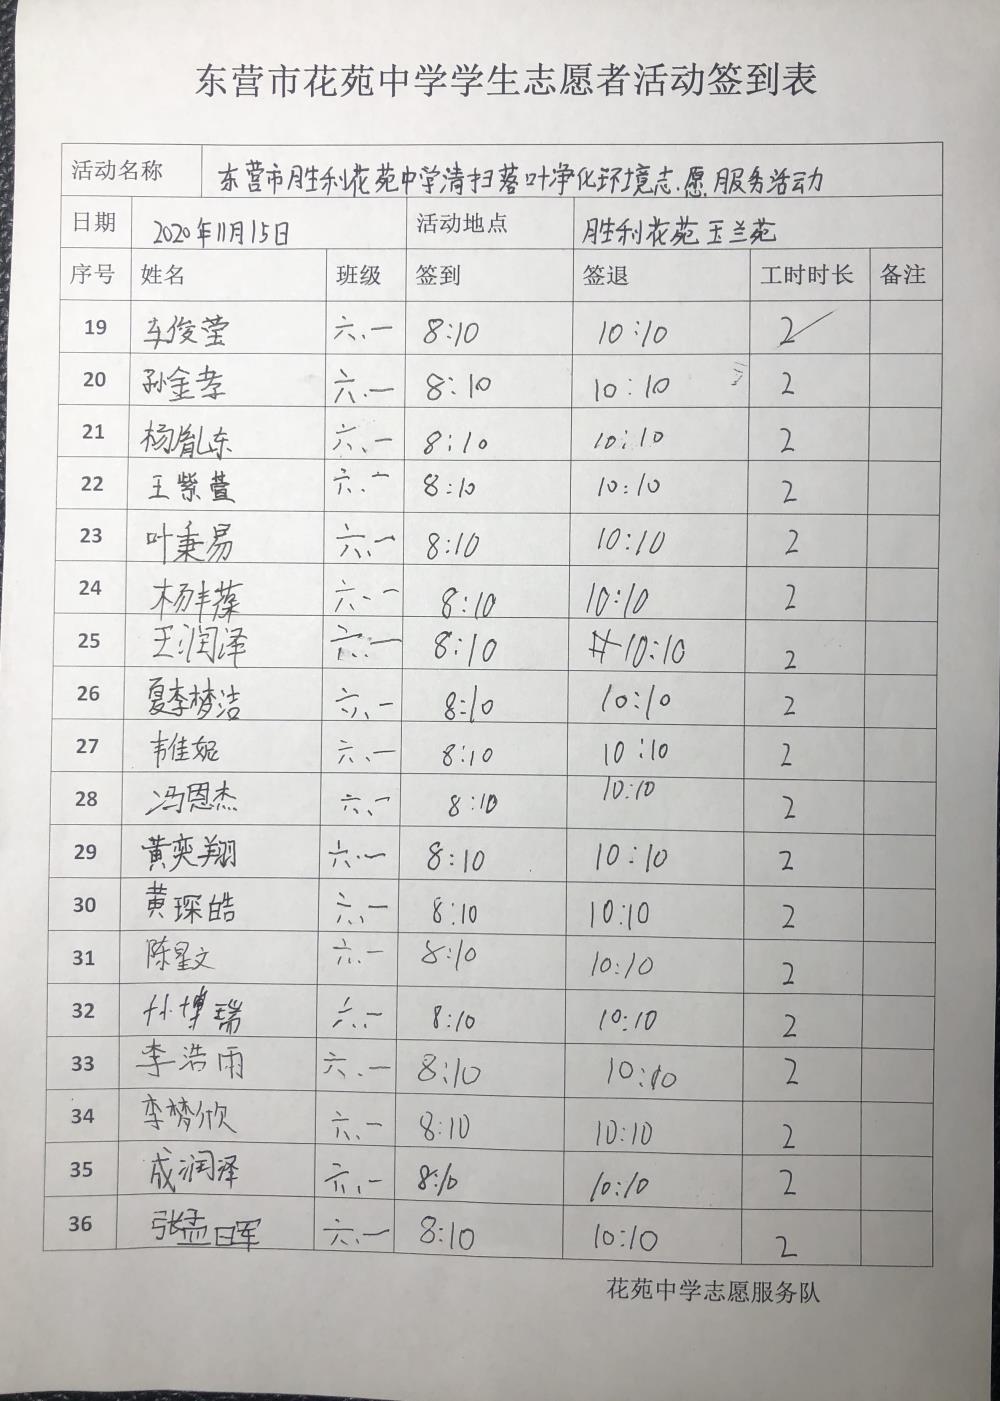 东营市花苑中学学生志愿者活动签到表
活动名称 东营市胜利花苑中学清扫落叶净化环境志愿服务活动
日期 2020年11月15日 活动地点 胜利花苑玉兰苑
序号 姓名 班级 签到 签退 工时时长 备注
19 车俊莹 六、一 8:10 10:10 2
20 孙金孝 六、一 8:10 10:10 2
21 杨胤东 六、一 8:10 10:10 2
22 王紫萱 六、一 8:10 10:10 2
23 叶秉易 六、一 8:10 10:10 2
24 杨丰葆 六、一 8:10 10:10 2
25 王润泽 六、一 8:10 10:10 2
26 夏李梦洁 六、一 8:10 10:10 2
27 韦佳妮 六、一 8:10 10:10 2
28 冯恩杰 六、一 8:10 10:10 2
29 黄奕翔 六、一 8:10 10:10 2
30 黄琛皓 六、一 8:10 10:10 2
31 陈星文 六、一 8:10 10:10 2
32 博瑞 六、一 8:10 10:10 2
33 李浩雨 六、一 8:10 10:10 2
34 李梦欣 六、一 8:10 10:10 2
35 成润泽 六、一 8:10 10:10 2
36 张孟晖 六、一 8:10 10:10 2
花苑中学志愿服务队